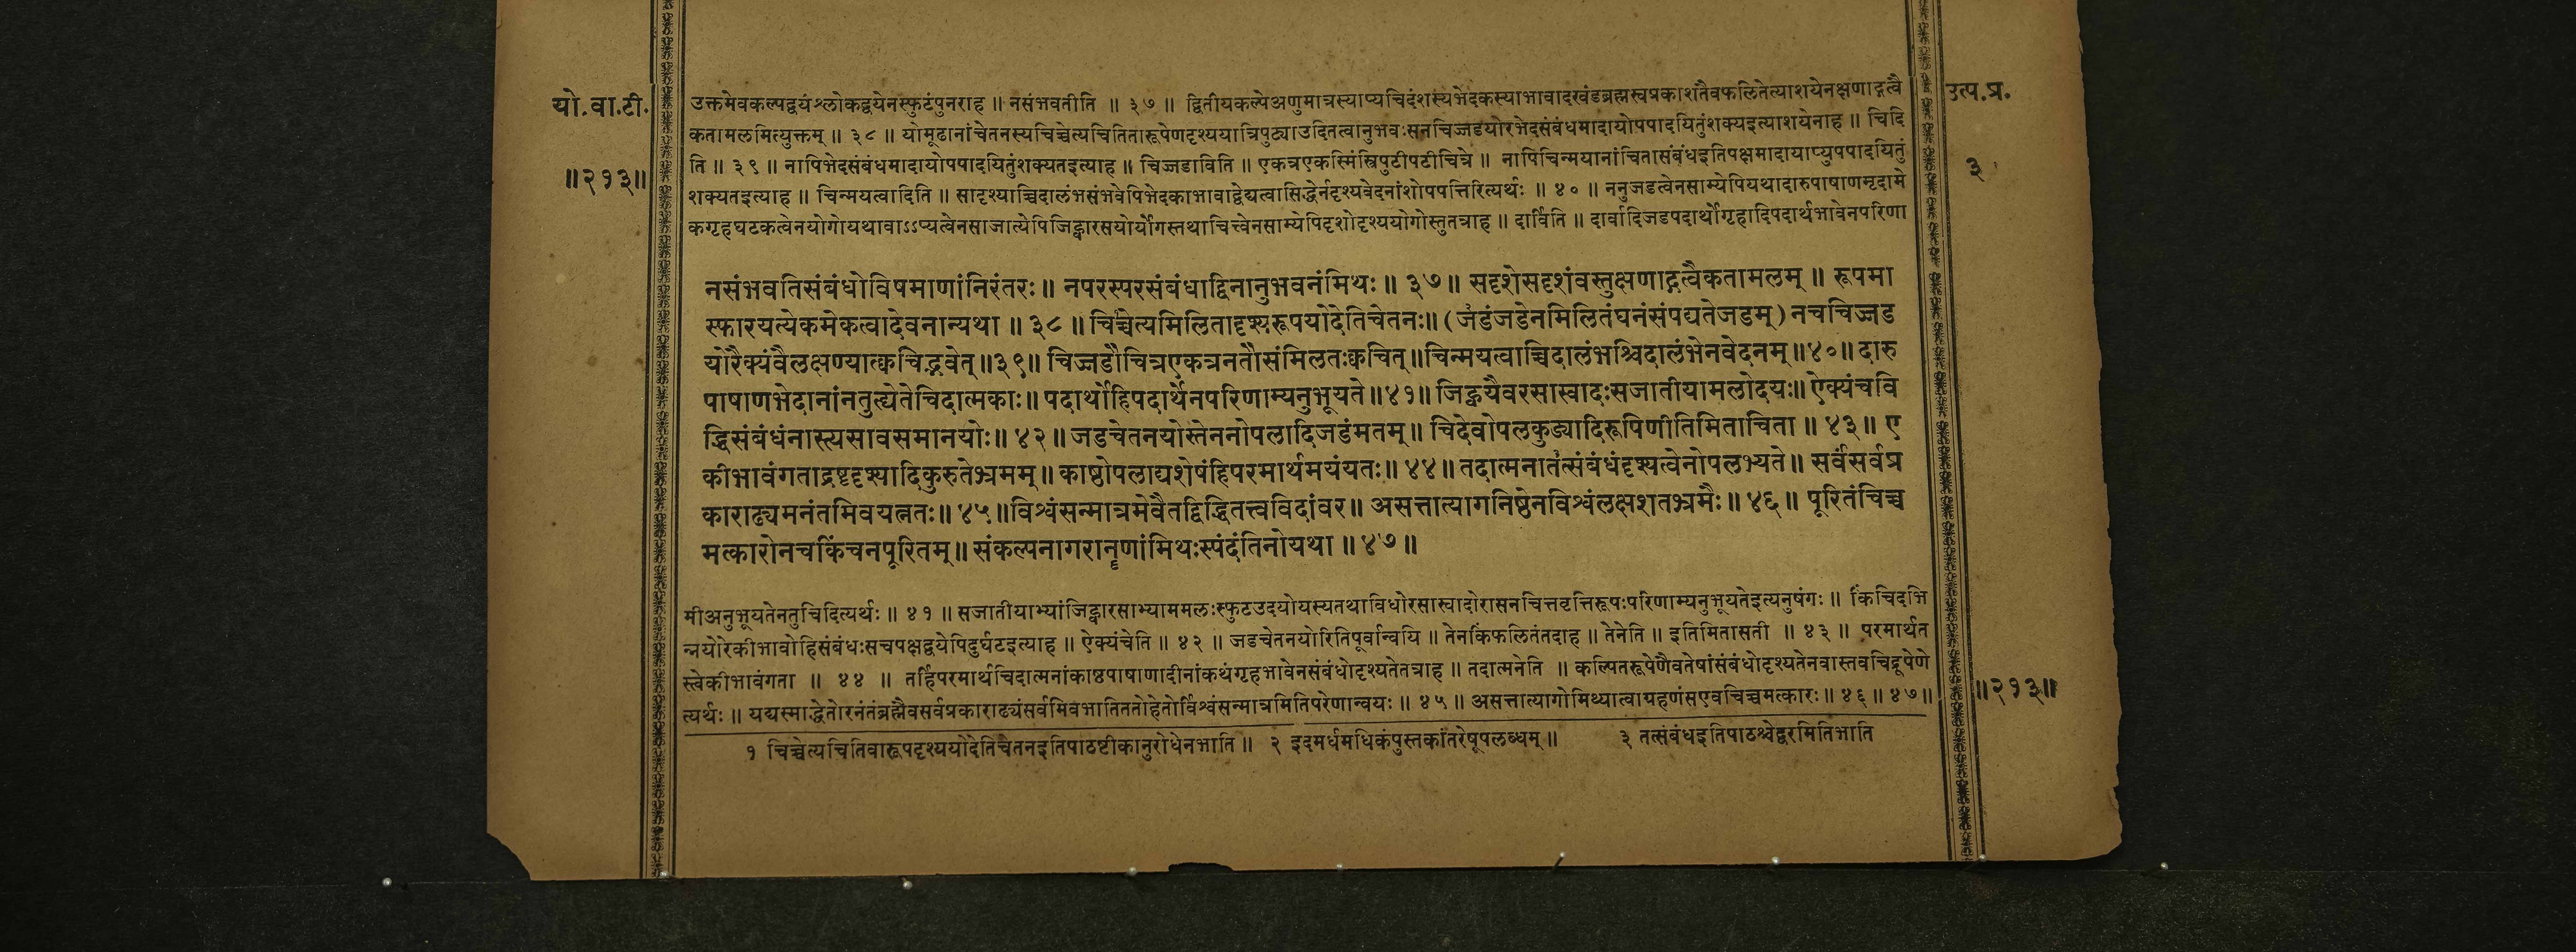 यो.वा.टी.
॥२१३॥
उत्प.प्र.
३
उक्तमेवकल्पद्वयंश्लोकद्वयेनस्फुटंपुनराह ॥ नसंभवतीति ॥ ३७ ॥ द्वितीयकल्पेअणुमात्रस्याप्यचिदंशस्यभेदकस्याभावादखंडब्रह्मस्वप्रकाशतैवफलितेत्याशयेनक्षणाद्गत्वै
कतामलमित्युक्तम् ॥ ३८ ॥ योमूढानांचेतनस्यचिच्चेत्यचितितारूपेणदृश्ययात्रिपुट्याउदितत्वानुभवःसनचिज्जडयोरभेदसंबंधमादायोपपादयितुंशक्यइत्याशयेनाह ॥ चिदि
ति ॥ ३९ ॥ नापिभेदसंबंधमादायोपपादयितुंशक्यतइत्याह ॥ चिज्जडाविति ॥ एकत्रएकस्मिंस्त्रिपुटीपटीचित्रे ॥ नापिचिन्मयानांचितासंबंधइतिपक्षमादायाप्युपपादयितुं
शक्यतइत्याह ॥ चिन्मयत्वादिति ॥ सादृश्याच्चिदालंभसंभवेपिभेदकाभावाद्वेद्यत्वासिद्धेर्नदृश्यवेदनांशोपपत्तिरित्यर्थः ॥ ४० ॥ ननुजडत्वेनसाम्येपियथादारुपाषाणमृदामे
कगृहघटकत्वेनयोगोयथावाऽऽप्यत्वेनसाजात्येपिजिह्वारसयोर्योगस्तथाचित्त्वेनसाम्येपिदृशोदृश्ययोगोस्तुतत्राह ॥ दार्विति ॥ दार्वादिजडपदार्थोगृहादिपदार्थभावेनपरिणा
नसंभवतिसंबंधोविषमाणांनिरंतरः ॥ नपरस्परसंबंधाद्विनानुभवनंमिथः ॥ ३७ ॥ सदृशेसदृशंवस्तुक्षणाद्गत्वैकतामलम् ॥ रूपमा
स्फारयत्येकमेकत्वादेवनान्यथा ॥ ३८ ॥ चिच्चेत्यमिलितादृश्यरूपयोदेतिचेतनः ॥ (जडंजडेनमिलितंघनंसंपद्यतेजडम्) नचचिज्जड
योरैक्यंवैलक्षण्यात्क्वचिद्भवेत् ॥३९॥ चिज्जडौचित्रएकत्रनतौसंमिलतःक्वचित् ॥चिन्मयत्वाच्चिदालंभश्चिदालंभेनवेदनम् ॥४०॥ दारु
पाषाणभेदानांनतुत्येतेचिदात्मकाः ॥ पदार्थोहिपदार्थेनपरिणाम्यनुभूयते ॥४१॥ जिह्वयैवरसास्वादःसजातीयामलोदयः ॥ ऐक्यंचवि
द्धिसंबंधंनास्त्यसावसमानयोः ॥ ४२ ॥ जडचेतनयोस्तेननोपलादिजडंमतम् ॥ चिदेवोपलकुड्यादिरूपिणीतिमिताचिता ॥ ४३ ॥ ए
कीभावंगताद्रष्टृदृश्यादिकुरुतेभ्रमम् ॥ काष्ठोपलाद्यशेषंहिपरमार्थमयंयतः ॥ ४४ ॥ तदात्मनातत्संबंधंदृश्यत्वेनोपलभ्यते ॥ सर्वंसर्वप्र
काराढ्यमनंतमिवयत्नतः ॥ ४५ ॥विश्वंसन्मात्रमेवैतद्विद्धितत्त्वविदांवर ॥ असत्तात्यागनिष्ठेनविश्वंलक्षशतभ्रमैः ॥ ४६ ॥ पूरितंचिच्च
मत्कारोनचकिंचनपूरितम् ॥ संकल्पनागरानॄणांमिथःस्पंदंतिनोयथा ॥ ४७ ॥
मीअनुभूयतेनतुचिदित्यर्थः ॥ ४१ ॥ सजातीयाभ्यांजिह्वारसाभ्याममलःस्फुटउदयोयस्यतथाविधोरसास्वादोरासनचित्तवृत्तिरूपःपरिणाम्यनुभूयतेइत्यनुषंगः ॥ किंचिदभि
न्नयोरेकीभावोहिसंबंधःसचपक्षद्वयेपिदुर्घटइत्याह ॥ ऐक्यंचेति ॥ ४२ ॥ जडचेतनयोरितिपूर्वान्वयि ॥ तेनकिंफलितंतदाह ॥ तेनेति ॥ इतिमितासती ॥ ४३ ॥ परमार्थत
स्त्वेकीभावंगता ॥ ४४ ॥ तर्हिपरमार्थचिदात्मनांकाष्ठपाषाणादीनांकथंगृहभावेनसंबंधोदृश्यतेतत्राह ॥ तदात्मनेति ॥ कल्पितरूपेणैवतेषांसंबंधोदृश्यतेनवास्तवचिद्रूपेणे
त्यर्थः ॥ यद्यस्माद्धेतोरनंतंब्रह्मैवसर्वप्रकाराढ्यंसर्वमिवभातिततोहेतोर्विश्वंसन्मात्रमितिपरेणान्वयः ॥ ४५ ॥ असत्तात्यागोमिथ्यात्वाग्रहणंसएवचिच्चमत्कारः ॥ ४६ ॥ ४७ ॥
॥२१३॥
१ चिच्चेत्यचितिवारूपदृश्ययोदेतिचेतनइतिपाठष्टीकानुरोधेनभाति ॥ २ इदमर्धमधिकंपुस्तकांतरेषूपलब्धम् ॥ ३ तत्संबंधइतिपाठश्चेद्वरमितिभाति